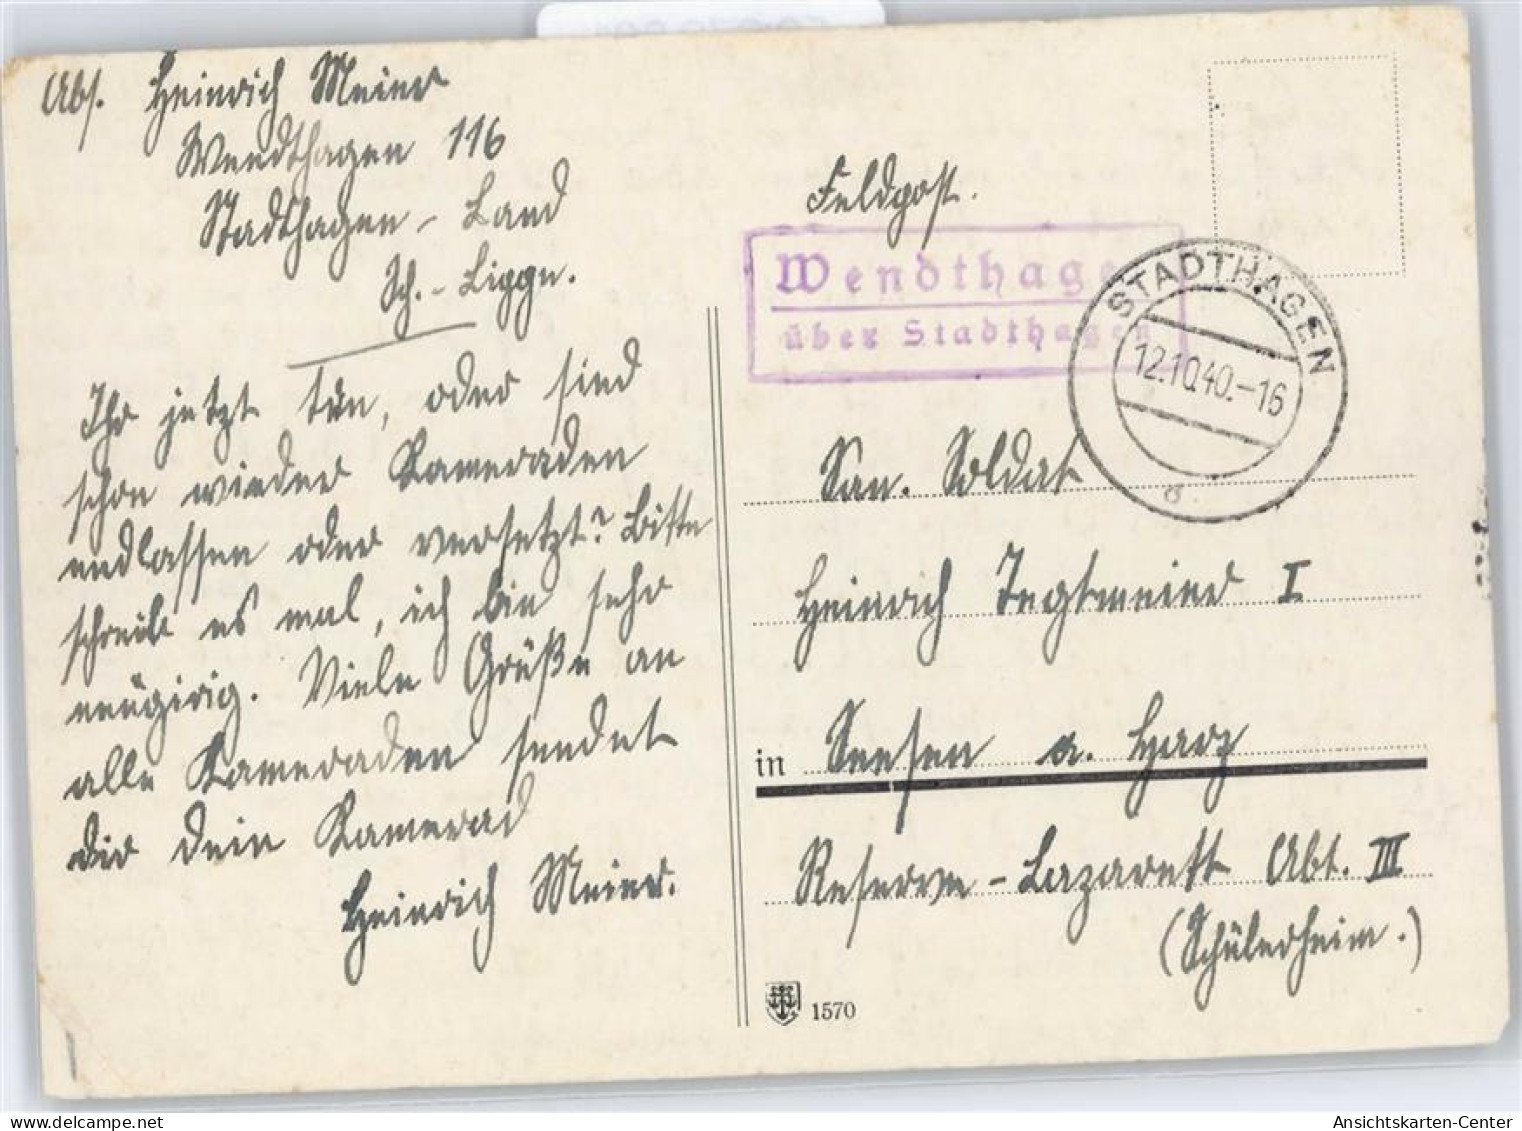 Abs. Heinrich Meier
Wendthagen 116
Stadthagen - Land
Sch.-Lippe.
Ihr jetzt tun, oder sind
schon wieder Kameraden
endlassen oder versetzt? Bitte
schreib es mal, ich bin sehr
neugirig. Viele Grüße an
alle Kameraden sendet
dir dein Kamerad
Heinrich Meier.
Feldpost.
Wendthage
über Stadthagen
STADTHAGEN
12.10.40.-16
d
San. Soldat
Heinrich Tegtmeier I
in Seesen a. Harz
Reserve-Lazarett Abt. III
(Schülerheim.)
1570
Ansichtskarten-Center